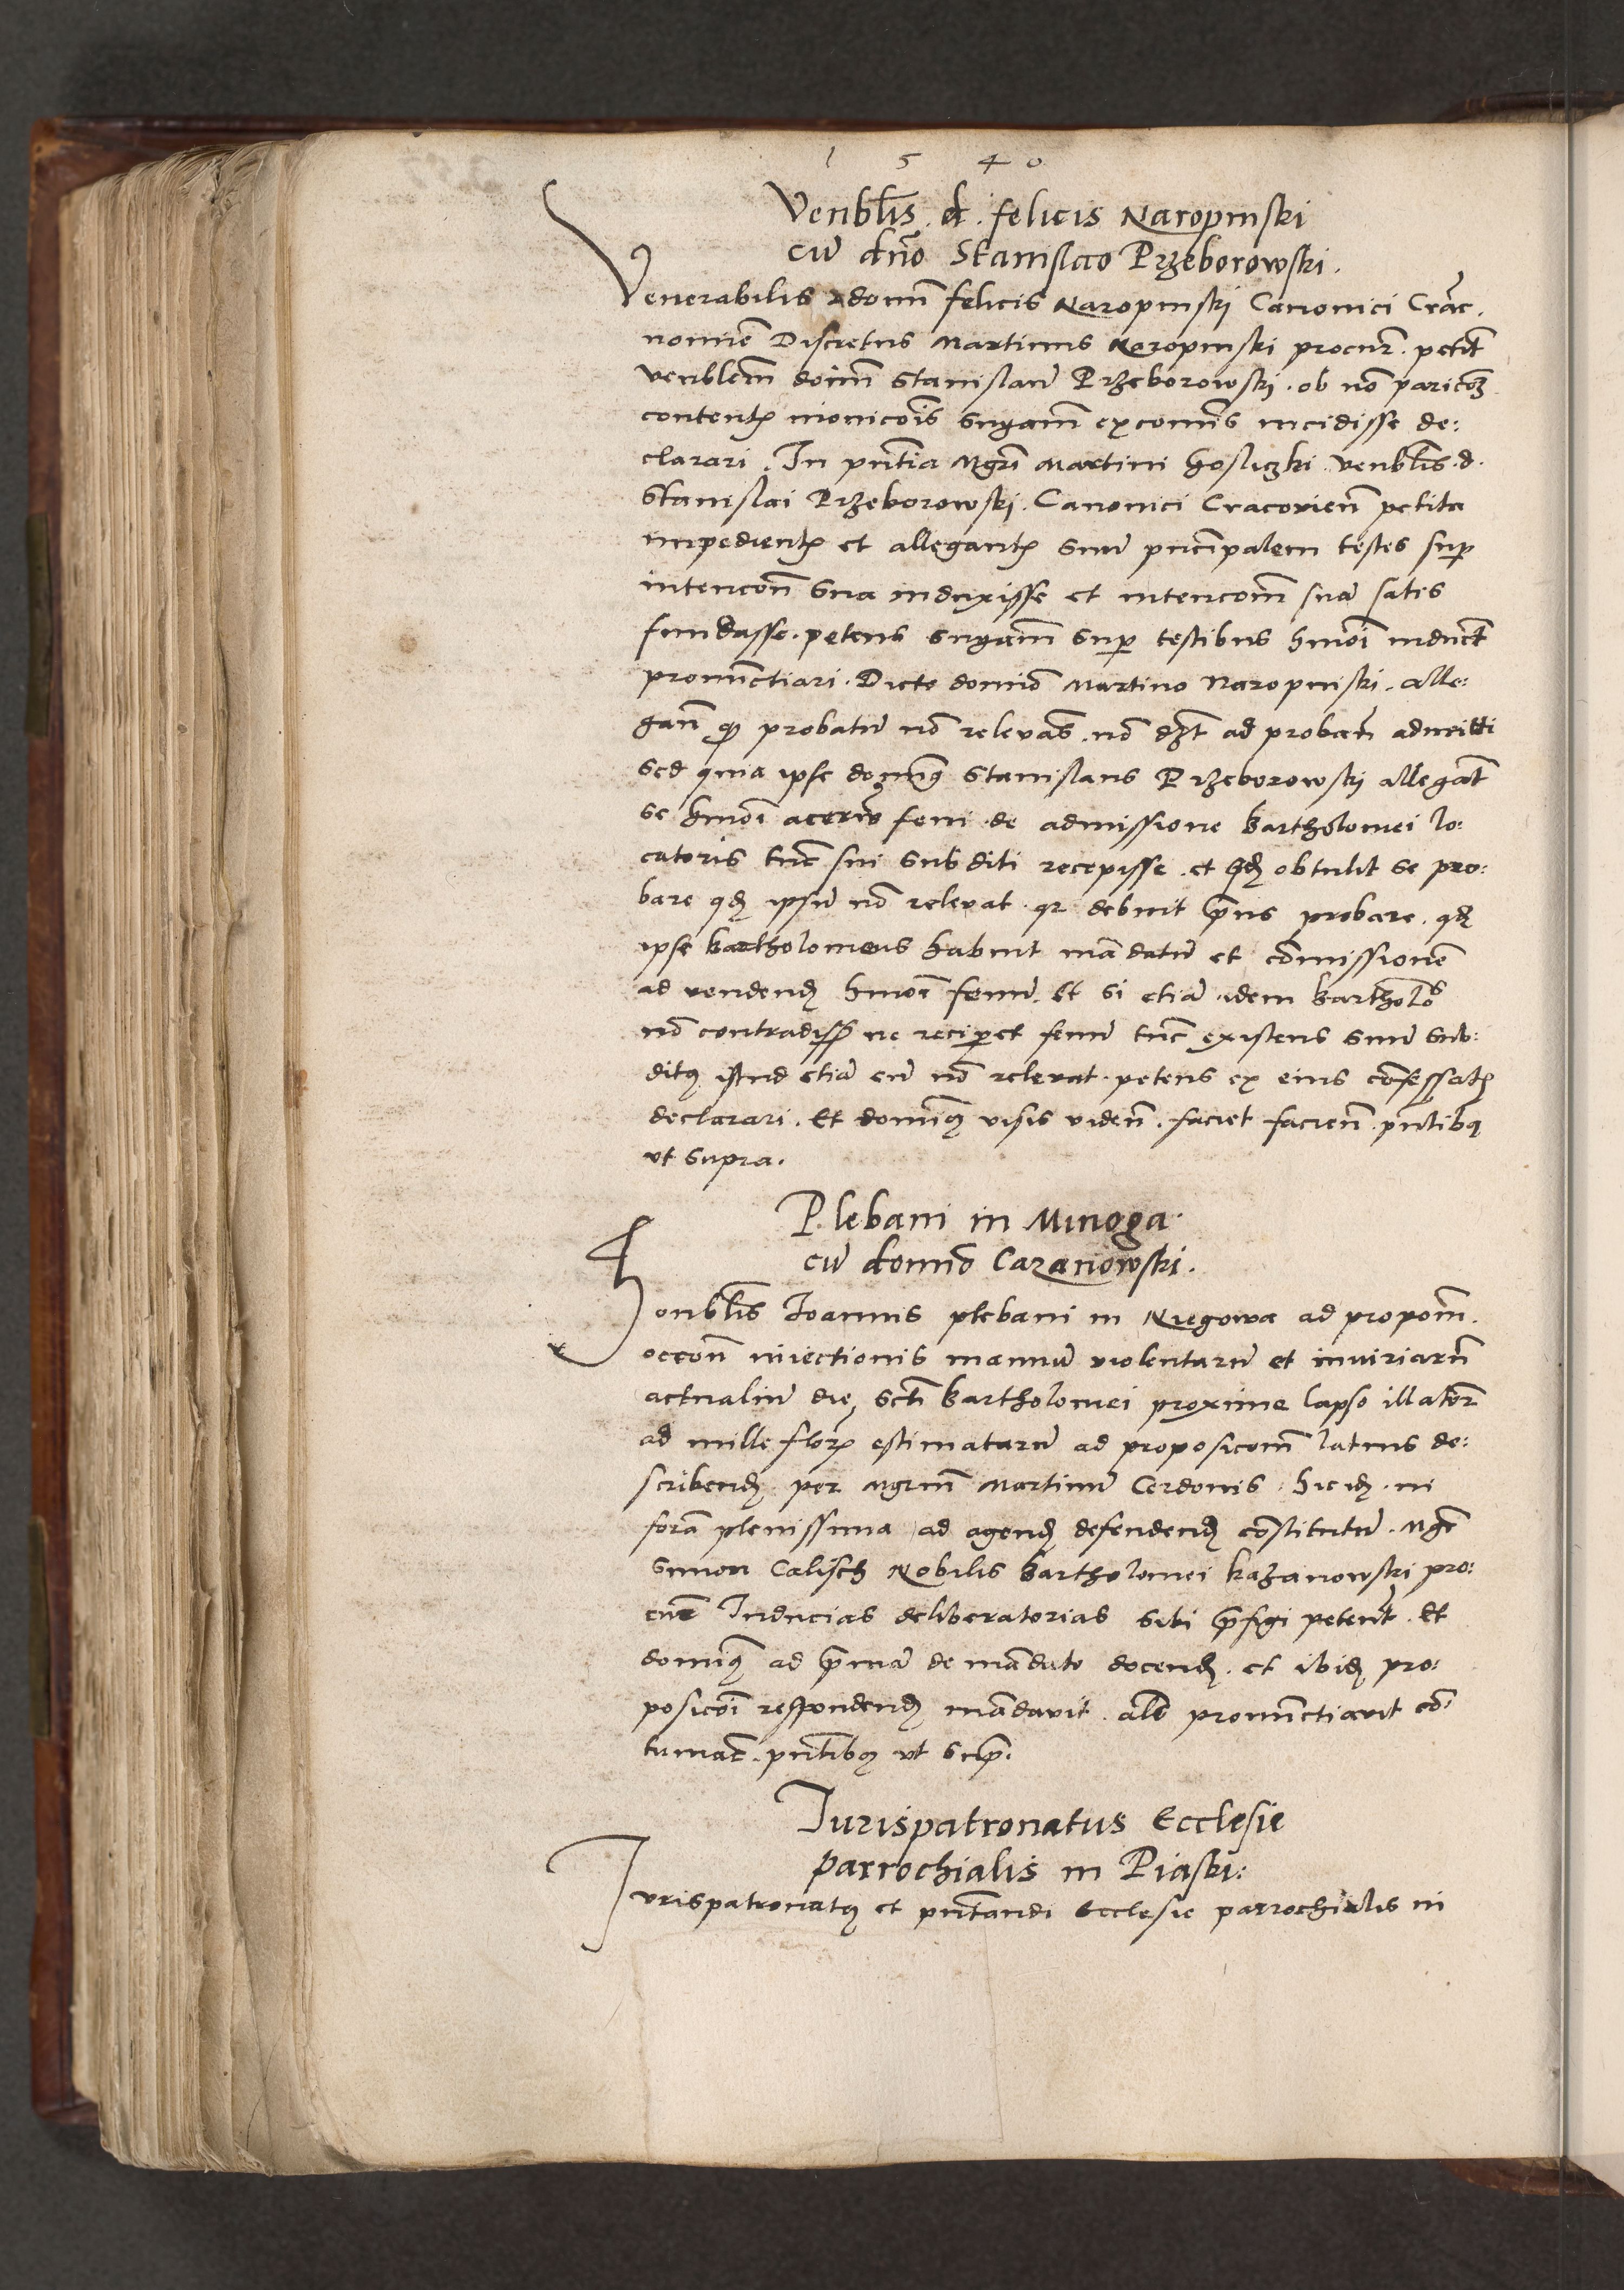 1 5 4 0
Venblis . d . felicis Naropinski
cu dno Stanislao Przeborowski .
Venerabilis domi felicis Naropinski Canonici Crac .
nomine Discretus Martinus Naropinski procur . petit
venblem doim Stanislau Przeborowski . ob no paricoz
content monicois sngam excomis incidisse de:
clarari . In pntia Mgri Martini Gosliczki venblis . d .
Stanislai Przeborowski . Canonici Cracovien petita
impedient et allegant suu pncipalem testes sup
intencon sua induxisse et intencom sua satis
fundasse . petens sngam sup testibus hmoi induct
pronunctiari . Dicto domino Martino Naropinski . alle:
gan q probatu no relevas . no dzt ad proban admitti
sed quia ipse dominq Stanislaus Przeborowski allegat
se hmoi acervu feni de admissione Bartholomei lo:
catoris tnc sui subditi recepisse . et qd obtulit se pro:
bare qd ipsu no relevat qr debuit prius probare . qd
ipse Bartholomeus habuit mandatu et comissione
ad vendend hmoi fenu . Et si etia idem Bartholos
no contradiss ne reciperet fenu tnc existens suu sub:
ditq istud etia eu no relevat . petens ex eius confessat
declarari . Et dominq visis viden . faciet facien . pntibq
vt supra .
Plebani in Minoga
cu domino Cazanowski .
Honblis Joannis plebani in Niegowa ad propom .
occon iniectionis manuu violentaru et iniuriaru
actualiu die scti Bartholomei proxime lapso illator
ad mille flor estimataru ad proposicom latius de:
scribend per Mgrum Martinu Cerdonis . hic id in
fora plenissima ad agend defendend constitutu . Mgr
Simon Calisch Nobilis Bartholomei Kazanowski pro:
cur Inducias deliberatorias sibi prefigi petent . Et
dominq ad prima de mandato docend . et ibid pro:
posicoi respondend mandavit . als pronunctiavit con
tumac . pntibq vt sup .
Jurispatronatus Ecclesie
parrochialis in Piaski :
Jurispatronatq et pntandi Ecclesie parrochialis in